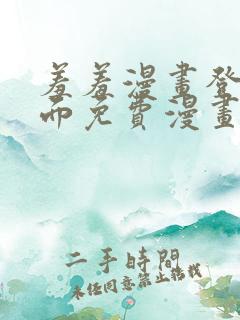 羞羞漫畫登
而免費漫畫
二手時間
未经同意禁止转载